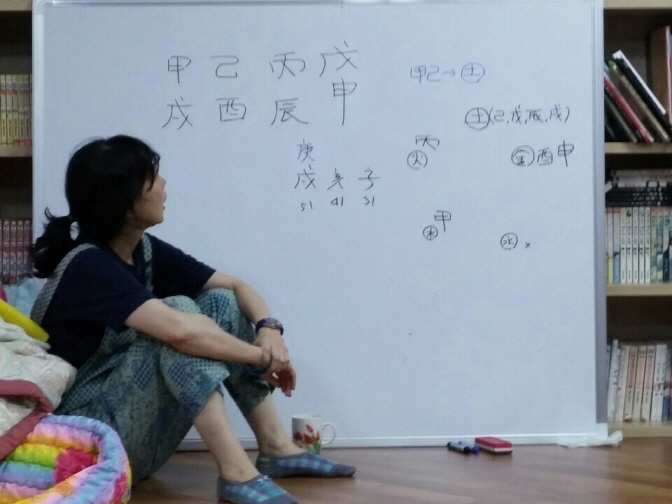 甲 己 丙 戊
戌 酉 辰 申
庚
戌 亥 子
51 41 31
甲己→土
土(己,戊,辰,戌)
丙
火
金 酉申
甲
木
水 ×